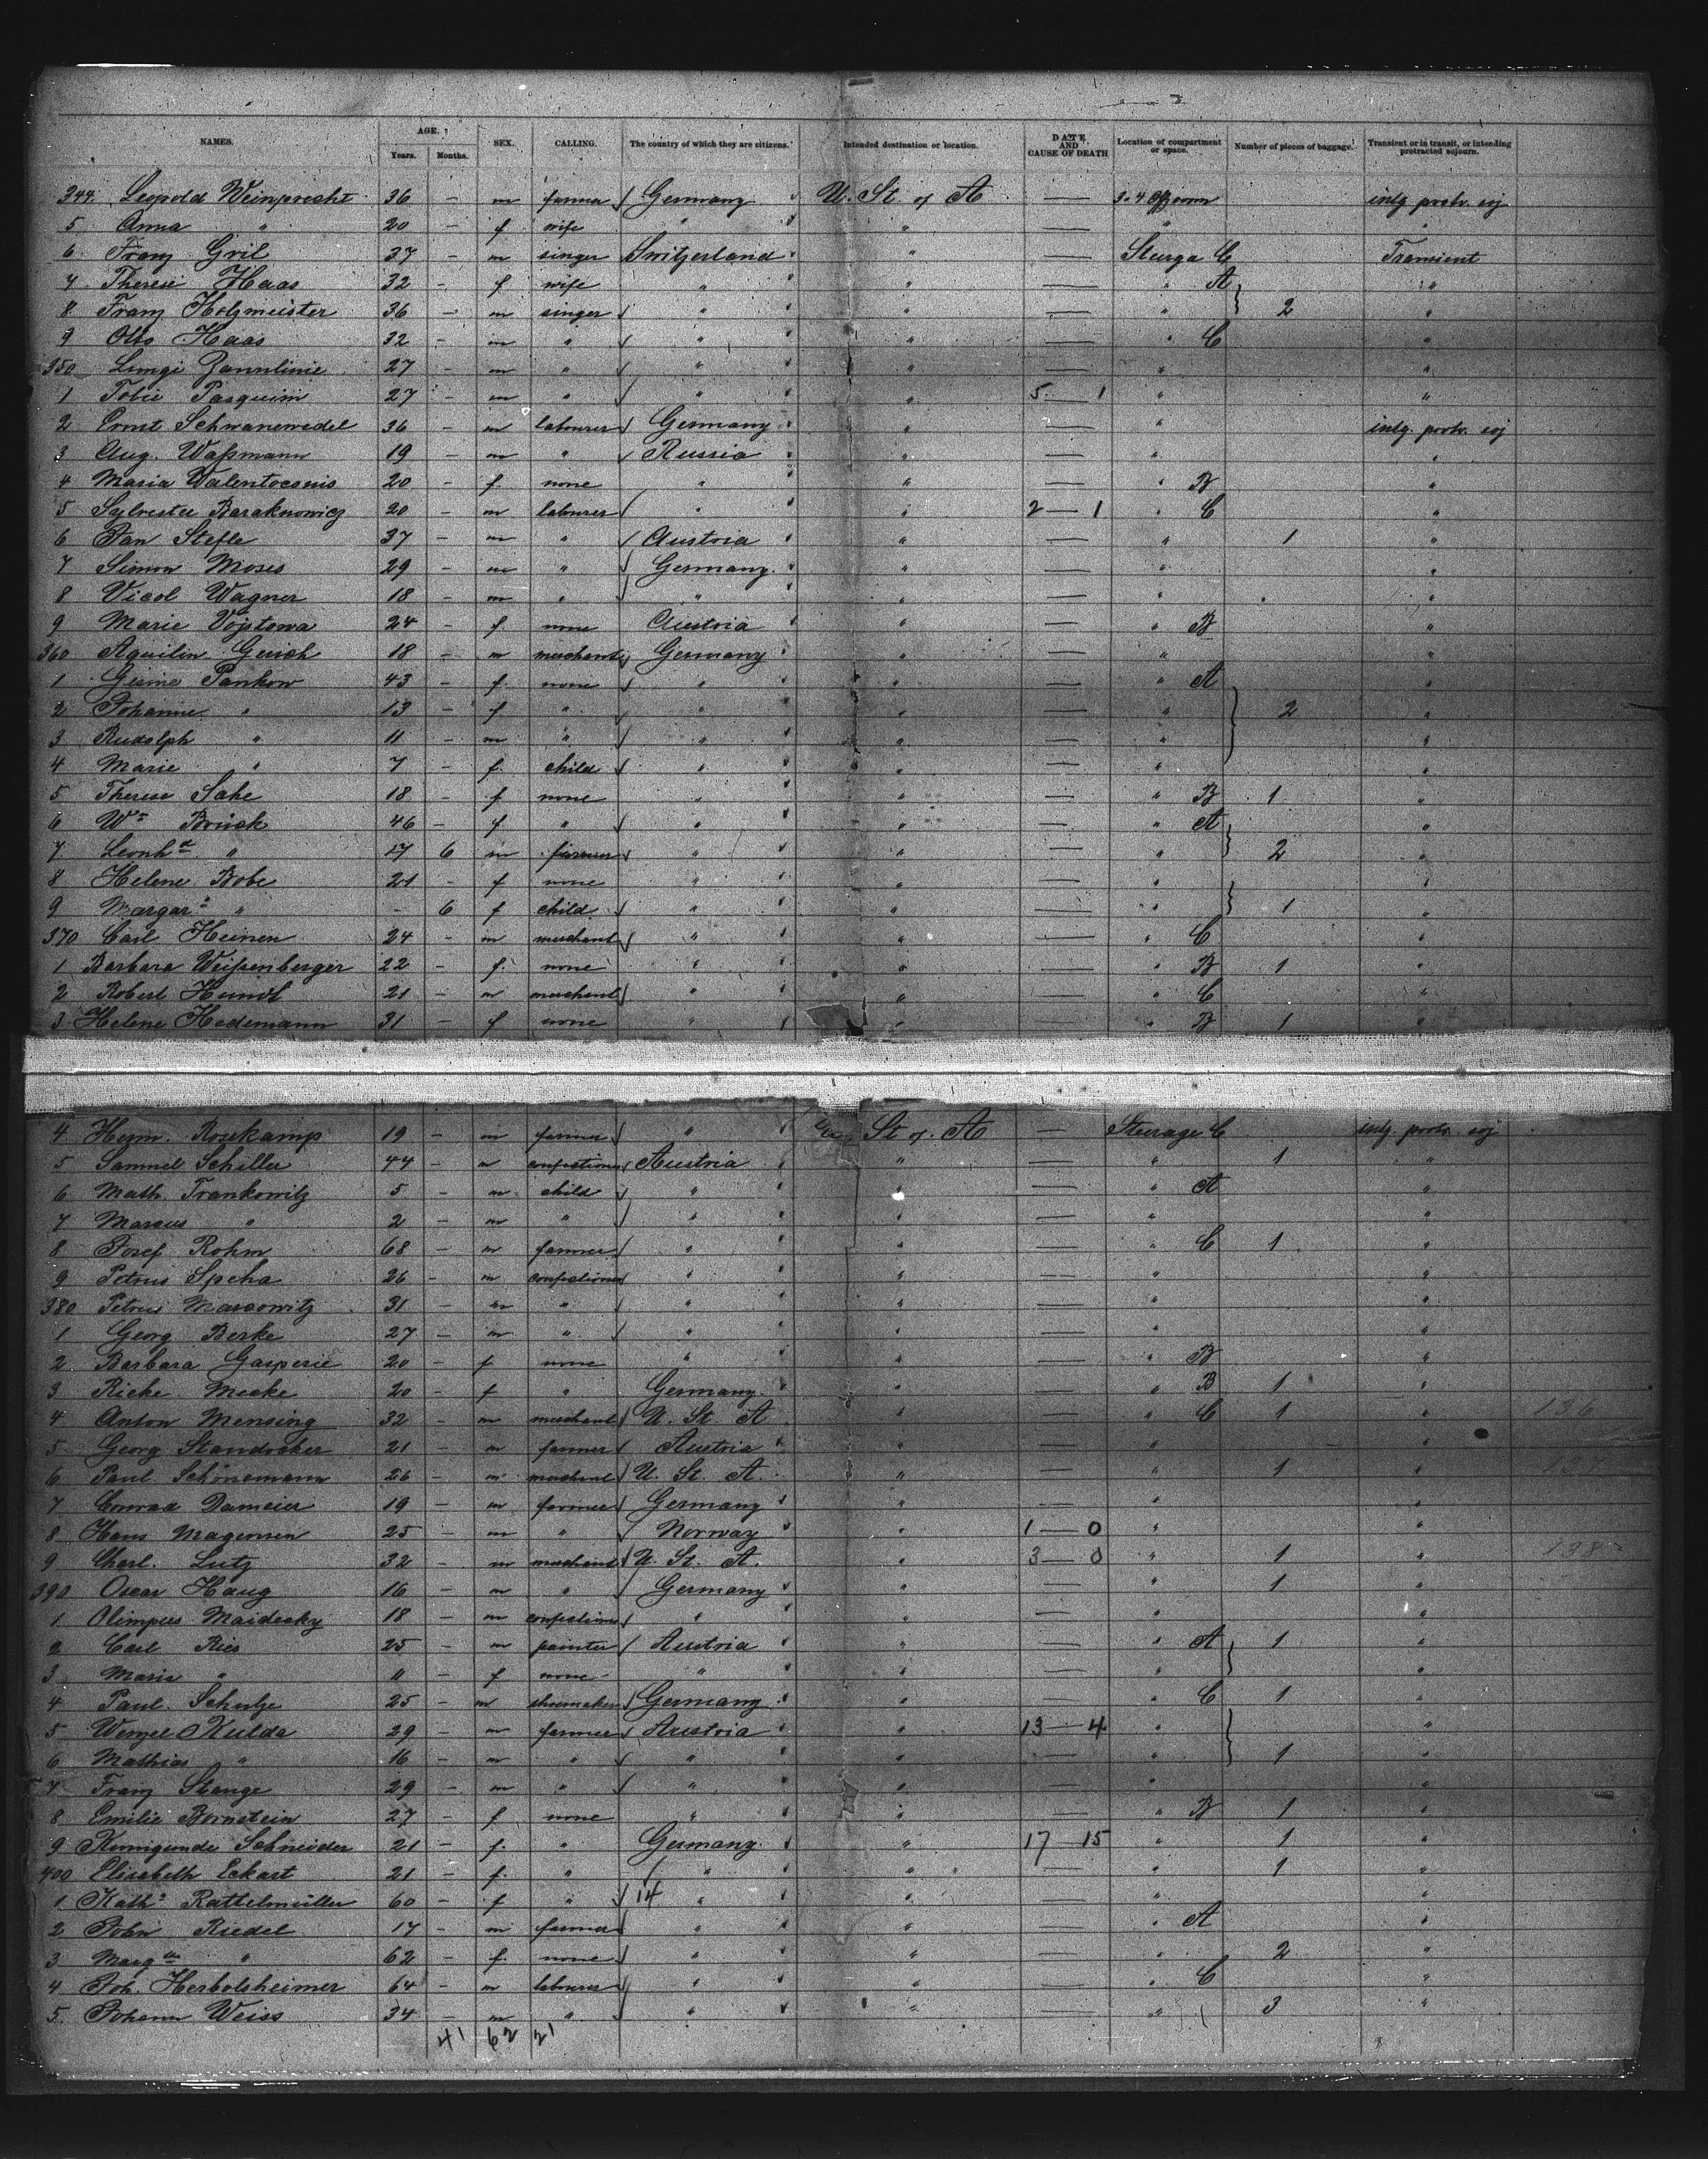 NAMES. AGE. Years. Months. SEX. CALLING. The country of which they are citizens. Intended destination or location. DATE AND CAUSE OF DEATH Location of compartment or space. Number of pieces of baggage. Transient or in transit, or intending protracted sojourn.
344. Leopold Weinprecht 36 — m farmer Germany U. St. of A — intg. protr. soj
5 Anna " 20 — f wife " " — " "
6 Franz Gril 37 — m singer Switzerland " — Sturga C Transient
7 Therese Haas 32 - f wife " " — " A "
8 Franz Holzmeister 36 — m singer " " — " 2 "
9 Otto Haas 32 — m " " " — " C "
350 27 — m " " " — " "
1 Tobie Pasquim 27 — m " " " 5 — 1 " "
2 Ernst Schwanewedel 36 — m labourer Germany " — " intg. protr. soj
3 Aug. Waßmann 19 — m " Russia " — " "
4 Maria 20 — f. none " " — " B "
5 Sylvester 20 — m labourer " " 2 — 1 " C "
6 Jan Stefle 37 — m " Austria " — " 1 "
7 Simon Moses 29 — m " Germany " — " "
8 Vicol Wagner 18 — m " " " — " "
9 Marie Vojstowa 24 — f. none Austria " — " B "
360 Aquilin 18 — m merchant Germany " — " "
1 Pankow 43 — f. none " " — " A "
2 Johanne " 13 — f " " " — " 2 "
3 Rudolph " 11 — m " " " — " "
4 Marie " 7 — f. child " " — " "
5 Therese Sahe 18 — f none " " — " B 1 "
6 Wm Brück 46 — f. " " " — " A "
7 Leonhd " 17 6 m farmer " " — " 2 "
8 Helene Bobe 21 - f none " " — " "
9 Margar. " - 6 f child " " — " 1 "
370 Carl Heinen 24 — m merchant " " — " C "
1 Barbara Weißenberger 22 — f. none " " — " B 1 "
2 Robert 21 — m merchant " " — " C "
3 Helene Hademann 31 — f none " " — " B 1 "
4 Herm. Rosekamp 19 — m farmer " St of. A — Sturage C intg. protr. soj
5 Samuel Schiller 44 — m confectioner Austria " — " 1 "
6 Math. Trankowitz 5 — m child " " — " A "
7 Marcus " 2 — m " " " — " "
8 Josef Rohm 68 — m farmer " " — " C 1 "
9 Petrus Speha 26 — m confectioner " " — " "
380 Petrus Marcowitz 31 — m " " " — " "
1 Georg Berke 27 — m " " " — " "
2 Barbara Gasperic 20 — f none " " — " B "
3 Rieke Mecke 20 — f " Germany " — " B 1 "
4 Anton Mensing 32 — m merchant U. St. A " — " C 1 " 136
5 Georg Standocker 21 — m farmer Austria " — " "
6 Paul Schönemann 26 — m merchant U. St. A. " — " 1 " 137
7 Conrad Dameier 19 — m farmer Germany " — " "
8 Hans 25 — m " Norway " 1 — 0 " "
9 Charl. Lutz 32 — m merchant U. St. A. " 3 — 0 " 1 " 138
390 Oscar Haug 16 — m " Germany " — " 1 "
1 Olimpus Maidecky 18 — m confectioner " " — " "
2 Carl Ries 25 — m painter Austria " — " A 1 "
3 Marie " 11 — f none " " — " "
4 Paul Schulze 25 — m shoemaker Germany " — " C 1 "
5 Wenzel Kulda 29 — m farmer Austria " 13 — 4 " "
6 Mathias " 16 — m " " " — " 1 "
7 Franz Stange 29 — m " " " — " "
8 Emilie Bornstein 27 — f. none " " — " B 1 "
9 Kunigunde Schneider 21 — f. " Germany " 17 — 15 " 1 "
400 Elisabeth Eckart 21 — f. " " " — " 1 "
1 Katha Rattelmüller 60 — f " 14 " " — " "
2 John Riedel 17 — m farmer " " — " A "
3 " 62 — f. none " " — " 2 "
4 Joh. Herbolsheimer 64 — m labourer " " — " C "
5. Johann Weiss 34 — m " " " — " 3 "
41 62 21